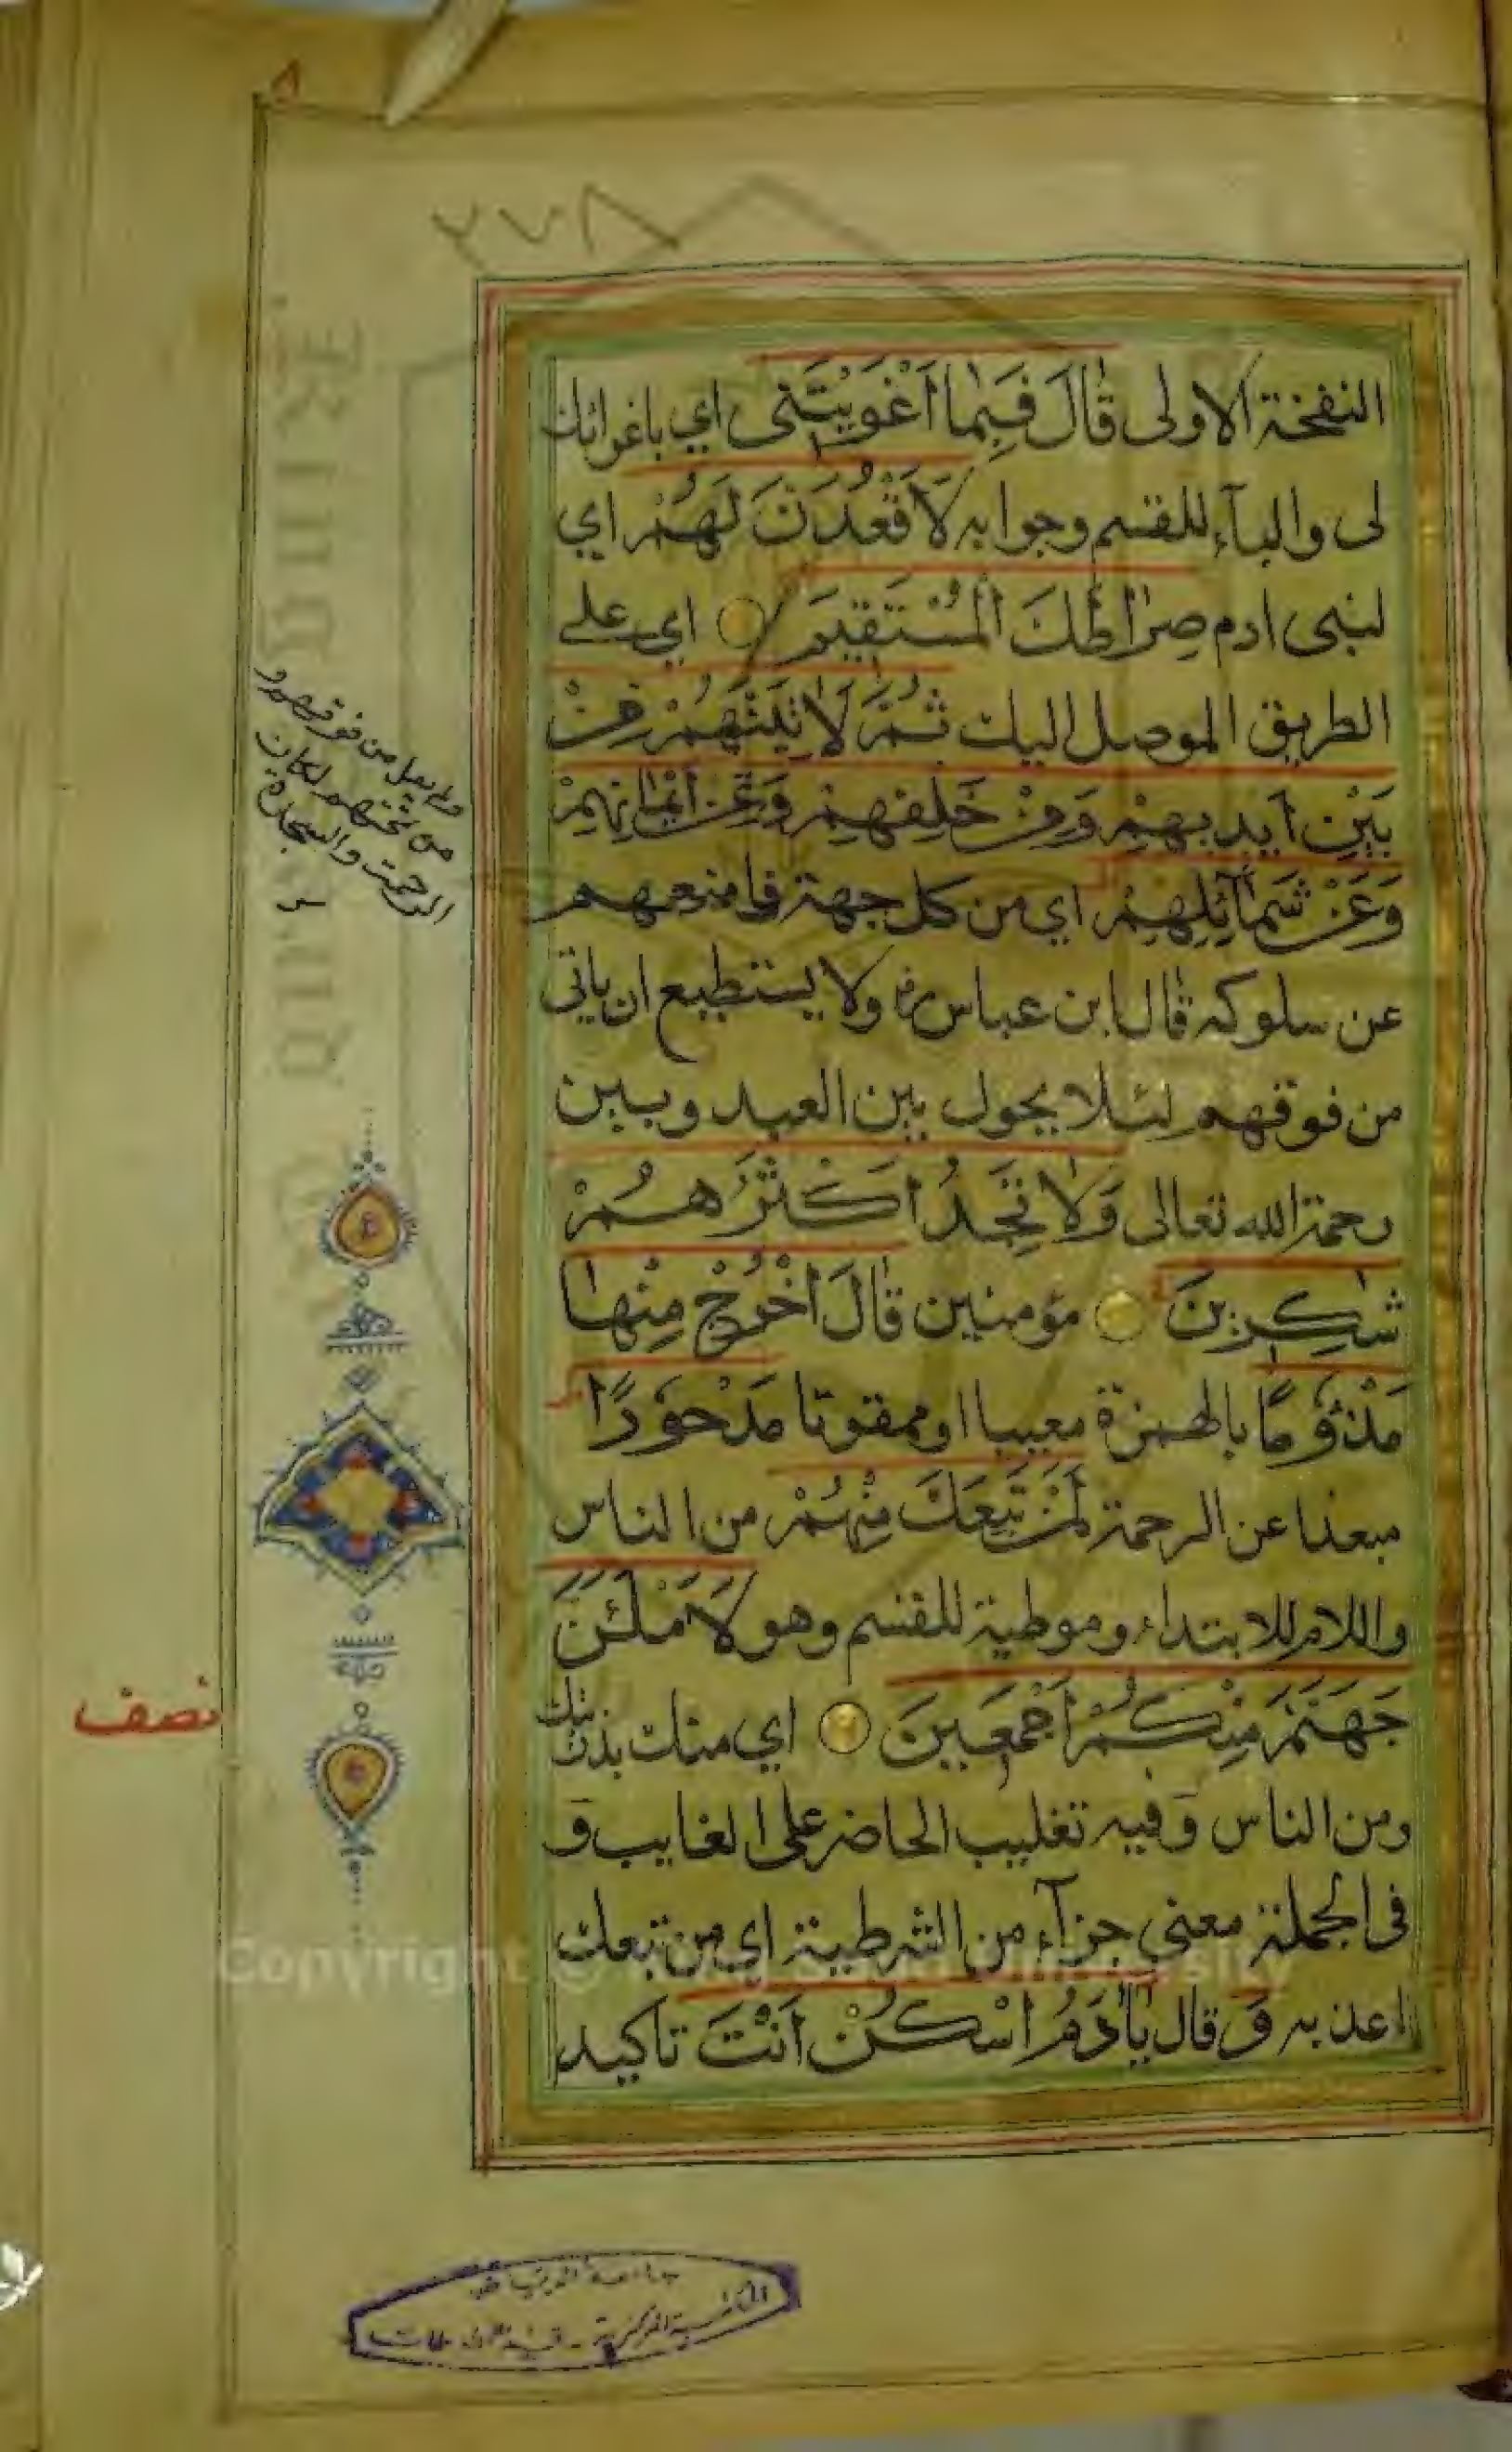 ٨
٢٧٨
النفخة الاولى قَالَ فَبِمَا اَغْوَيْتَنِى اي باغوائك
لى والبآء للقسم وجوابه لَاَقْعُدَنَّ لَهُمْ اي
لبنى ادم صِرَاطَكَ الْمُسْتَقِيمَ اي على
الطريق الموصل اليك ثُمَّ لَاٰتِيَنَّهُمْ مِنْ
بَيْنِ اَيْدِيهِمْ وَمِنْ خَلْفِهِمْ وَعَنْ اَيْمَانِهِمْ
وَعَنْ شَمَائِلِهِمْ اي من كل جهة فامنعهم
عن سلوكه قال ابن عباس رض ولا يستطيع ان ياتى
من فوقهم لئلا يحول بين العبد وبين
رحمة الله تعالى وَلَا تَجِدُ اَكْثَرَهُمْ
شَاكِرِينَ مؤمنين قَالَ اخْرُجْ مِنْهَا
مَذْؤُمًا بالهمزة معيبا او ممقوتا مَدْحُورًا
مبعدا عن الرحمة لَمَنْ تَبِعَكَ مِنْهُمْ من الناس
واللام للابتداء وموطية للقسم وهو لَاَمْلَئَنَّ
جَهَنَّمَ مِنْكُمْ اَجْمَعِينَ اي منك بذريتك
ومن الناس وفيه تغليب الحاضر على الغايب و
فى الجملة معنى جزآء من الشرطية اي من تبعك
اعذبه وَ قال يَاٰدَمُ اسْكُنْ اَنْتَ تاكيد
ولم يقل من فوقهم و
من تحتهم لكان
الرحمة والسجدة
نصف
جامعة الرياض
المكتبة المركزية - قسم المخطوطات
Copyright © King Saud University